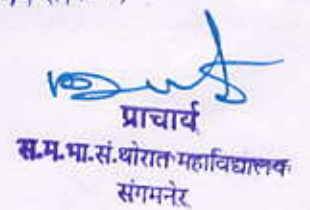 प्राचार्य
स.म.भा.सं.थोरात महाविद्यालय
संगमनेर